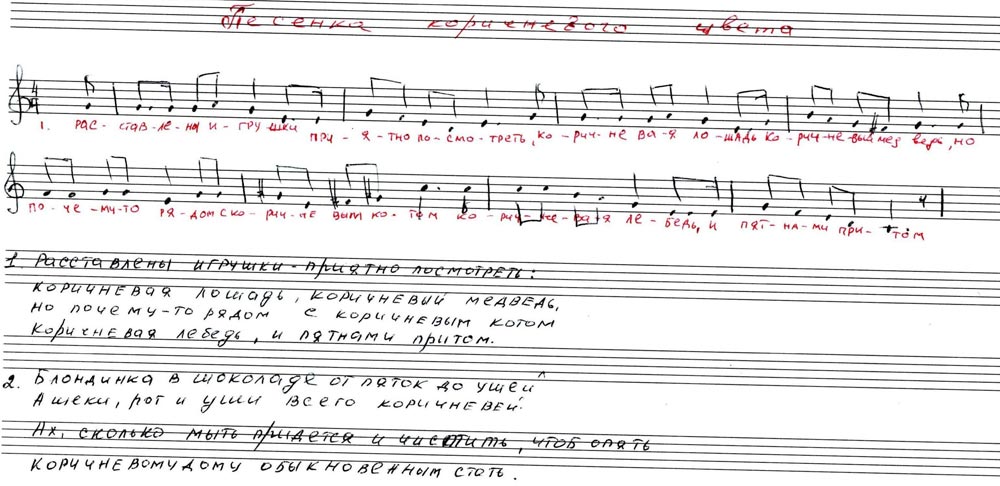 Песенка коричневого цвета
4 4
1. РАС-СТАВ-ЛЕ-НЫ И-ГРУ ШКИ ПРИ-Я-ТНО ПО-СМО-ТРЕТЬ, КО-РИЧ-НЕ ВА-Я ЛО-ШАДЬ КО-РИЧ-НЕ-ВЫЙ МЕД ВЕДЬ, НО
ПО-ЧЕ-МУ-ТО РЯ-ДОМ С КО-РИЧ-НЕ ВЫМ КО-ТОМ КО-РИЧ-НЕ-ВА-Я ЛЕ-БЕДЬ, И ПЯТ-НА-МИ ПРИ-ТОМ
1. Расставлены игрушки-приятно посмотреть:
коричневая лошадь, коричневый медведь,
но почему-то рядом с коричневым котом
Коричневая лебедь, и пятнами притом.
2. Блондинка в шоколаде от пяток до ушей
А щеки, рот и уши всего коричневей.
Ах, сколько мыть придется и чистить, чтоб опять
Коричневому дому обыкновенным стать.